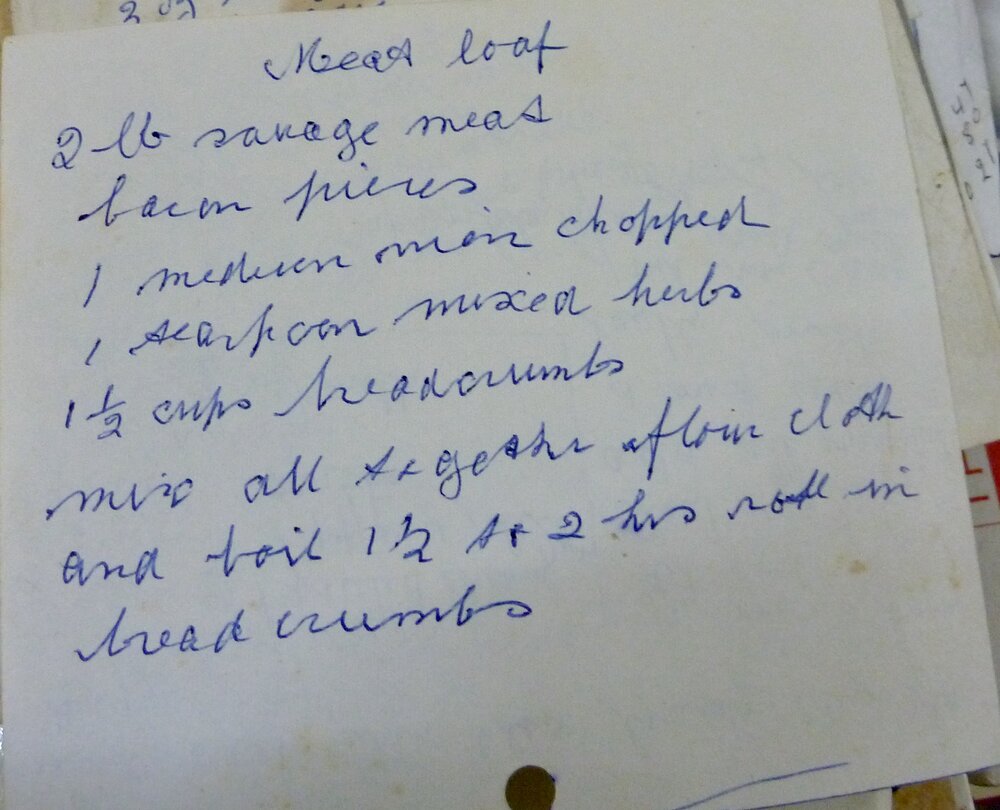 Meat loaf
2 lb sausage meat
bacon pieces
1 medium onion chopped
1 teaspoon mixed herbs
1 1/2 cups breadcrumbs
mix all together flour cloth
and boil 1 1/2 to 2 hrs roll in
bread crumbs